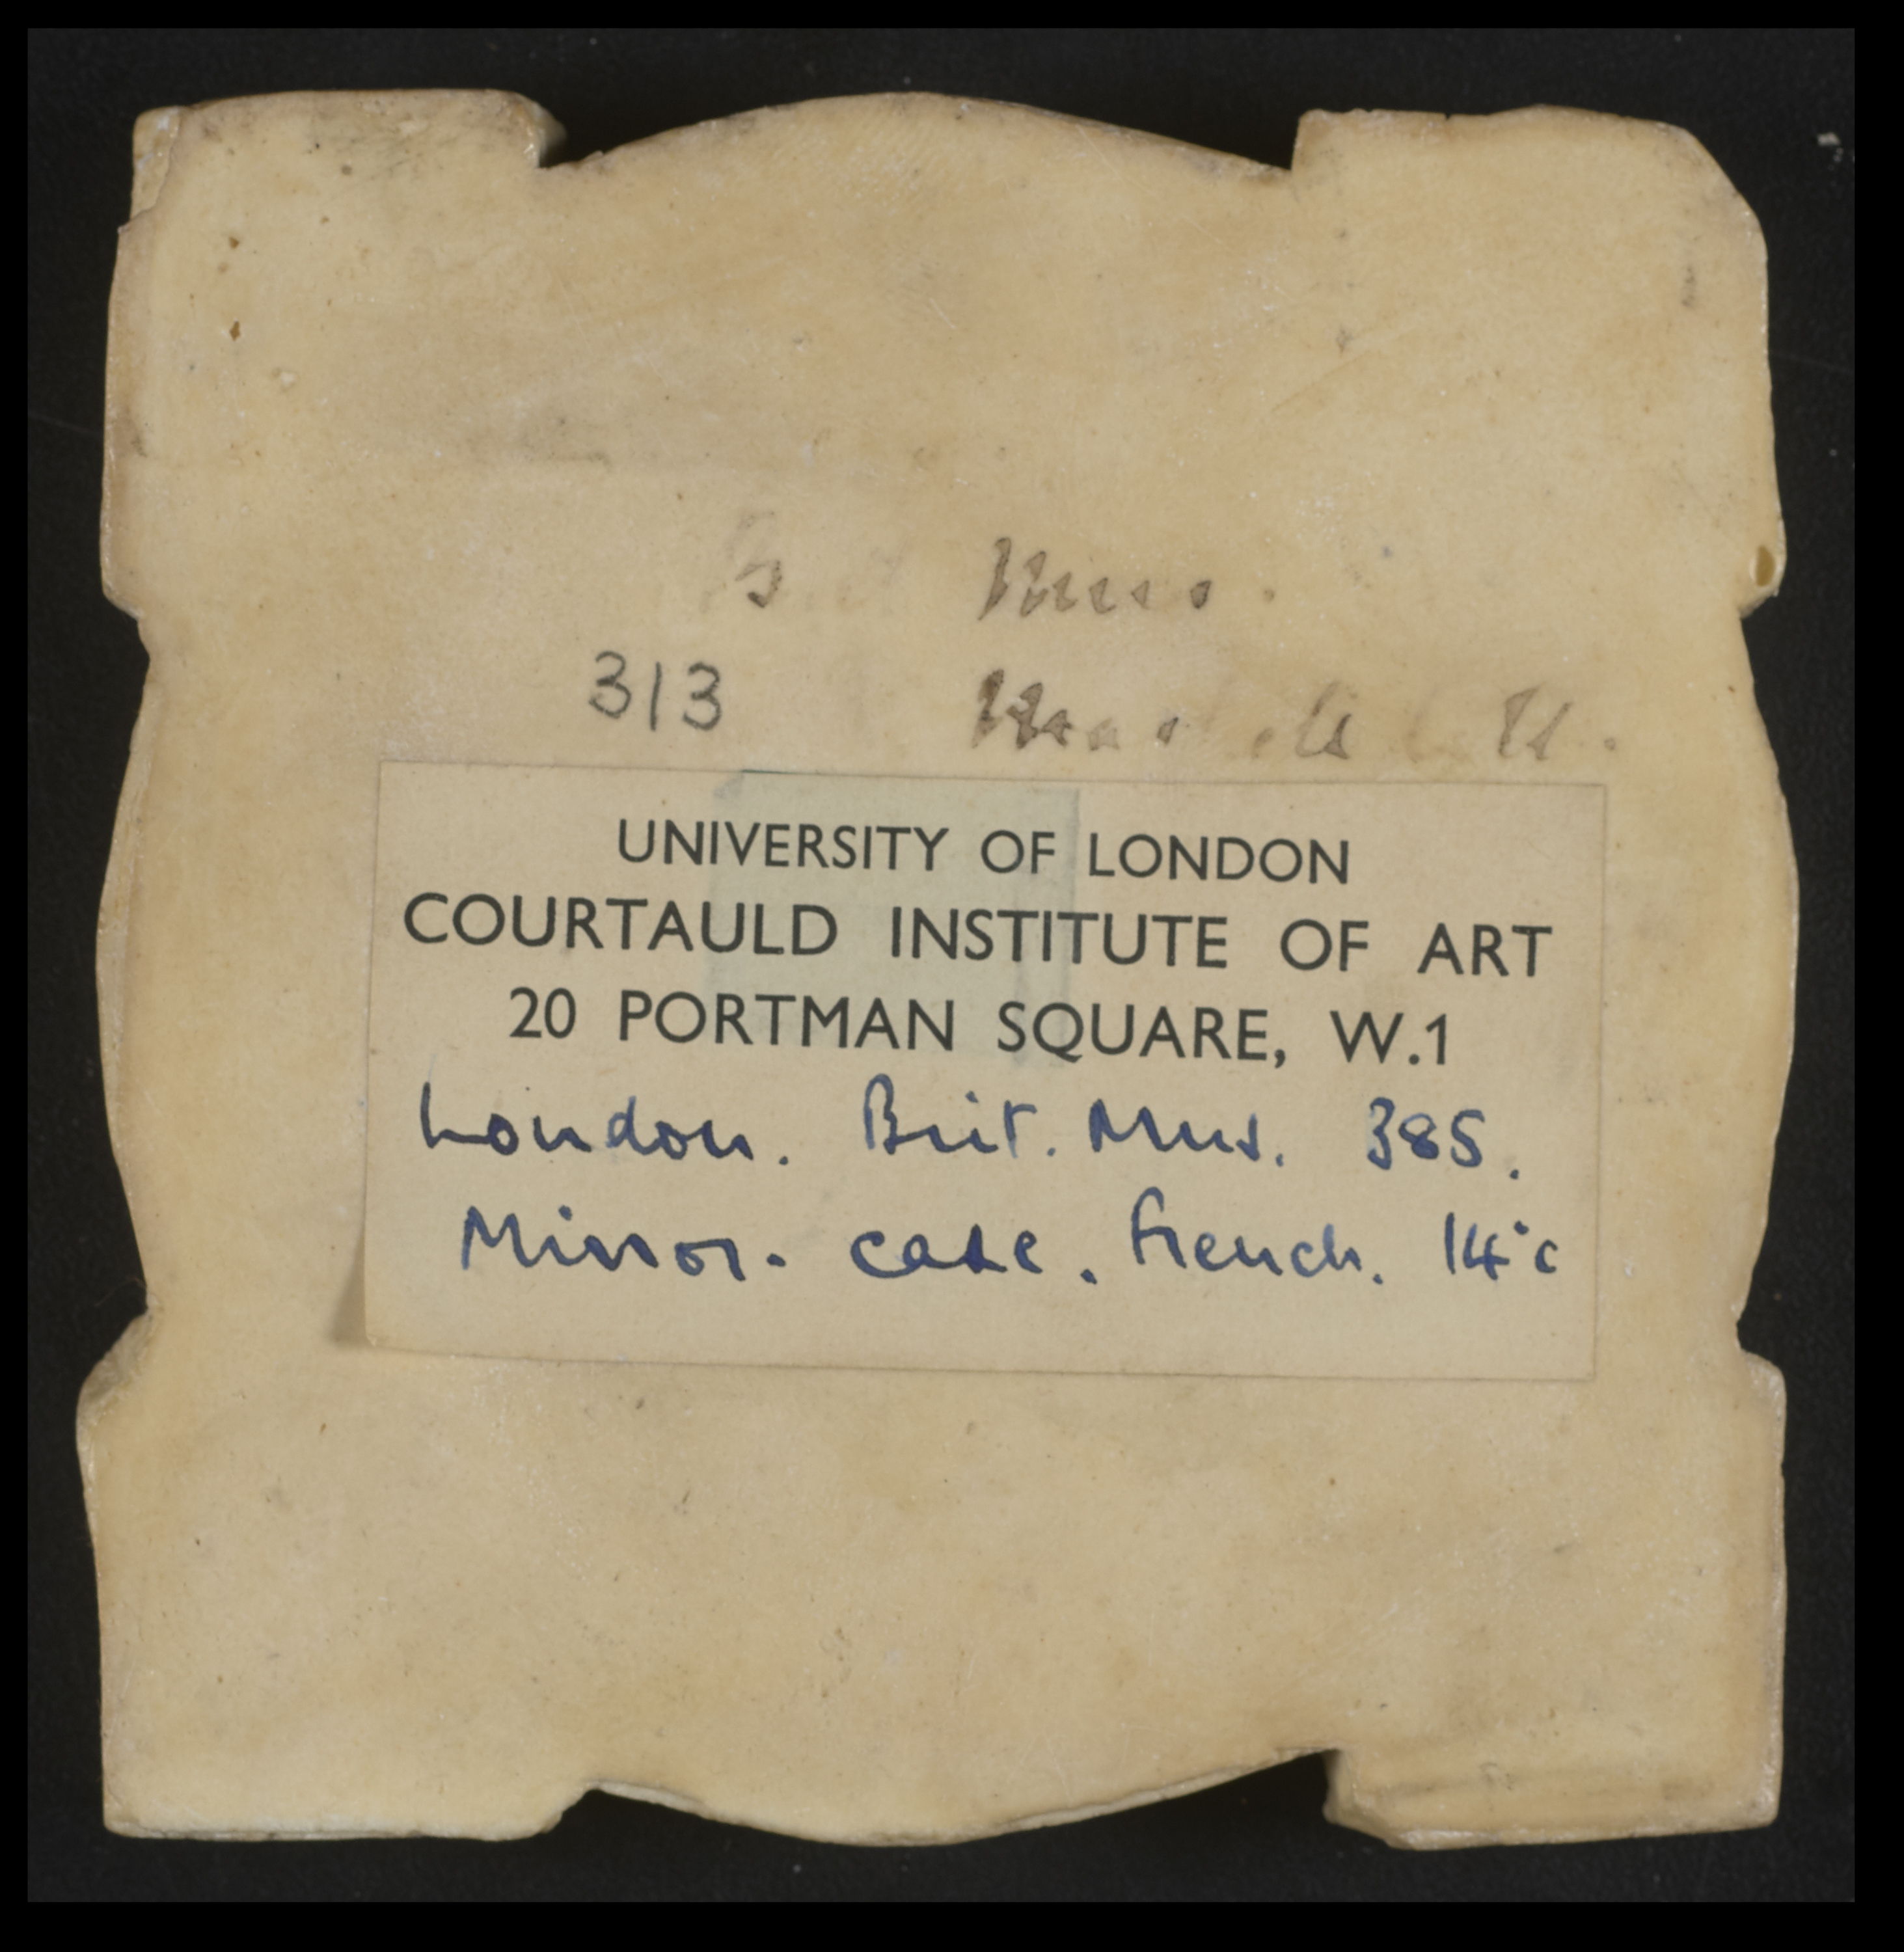 Mus.
313
UNIVERSITY OF LONDON
COURTAULD INSTITUTE OF ART
20 PORTMAN SQUARE, W.1
London. Brit. Mus. 385.
Mirror-case. French. 14ᵗc